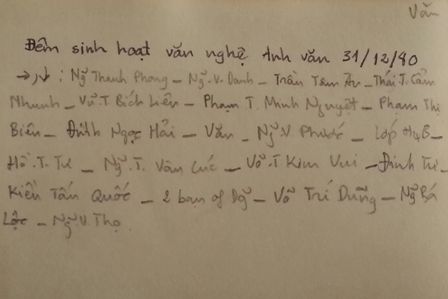 Văn
Đêm sinh hoạt văn nghệ Anh văn 31/12/90
→ ↓ : Ng~ Thanh Phong _ Ng~.V.Danh _ Trần Tâm An _ Thái.T.Cẩm
Nhung _ Vũ.T Bích Liên _ Phạm T. Minh Nguyệt _ Phạm Thị
Biên _ Đinh Ngọc Hải _ Văn _ Ng~.V Phước _ Lớp
Hồ.T.Tư _ Ng~.T. Vân Cúc _ Võ.T Kim Vui _ Đinh Tư _
Kiến Tấn Quốc _ 2 bạn of _ Võ Trí Dũng _ Ng~ Bá
Lộc _ Ng~.V.Thọ.